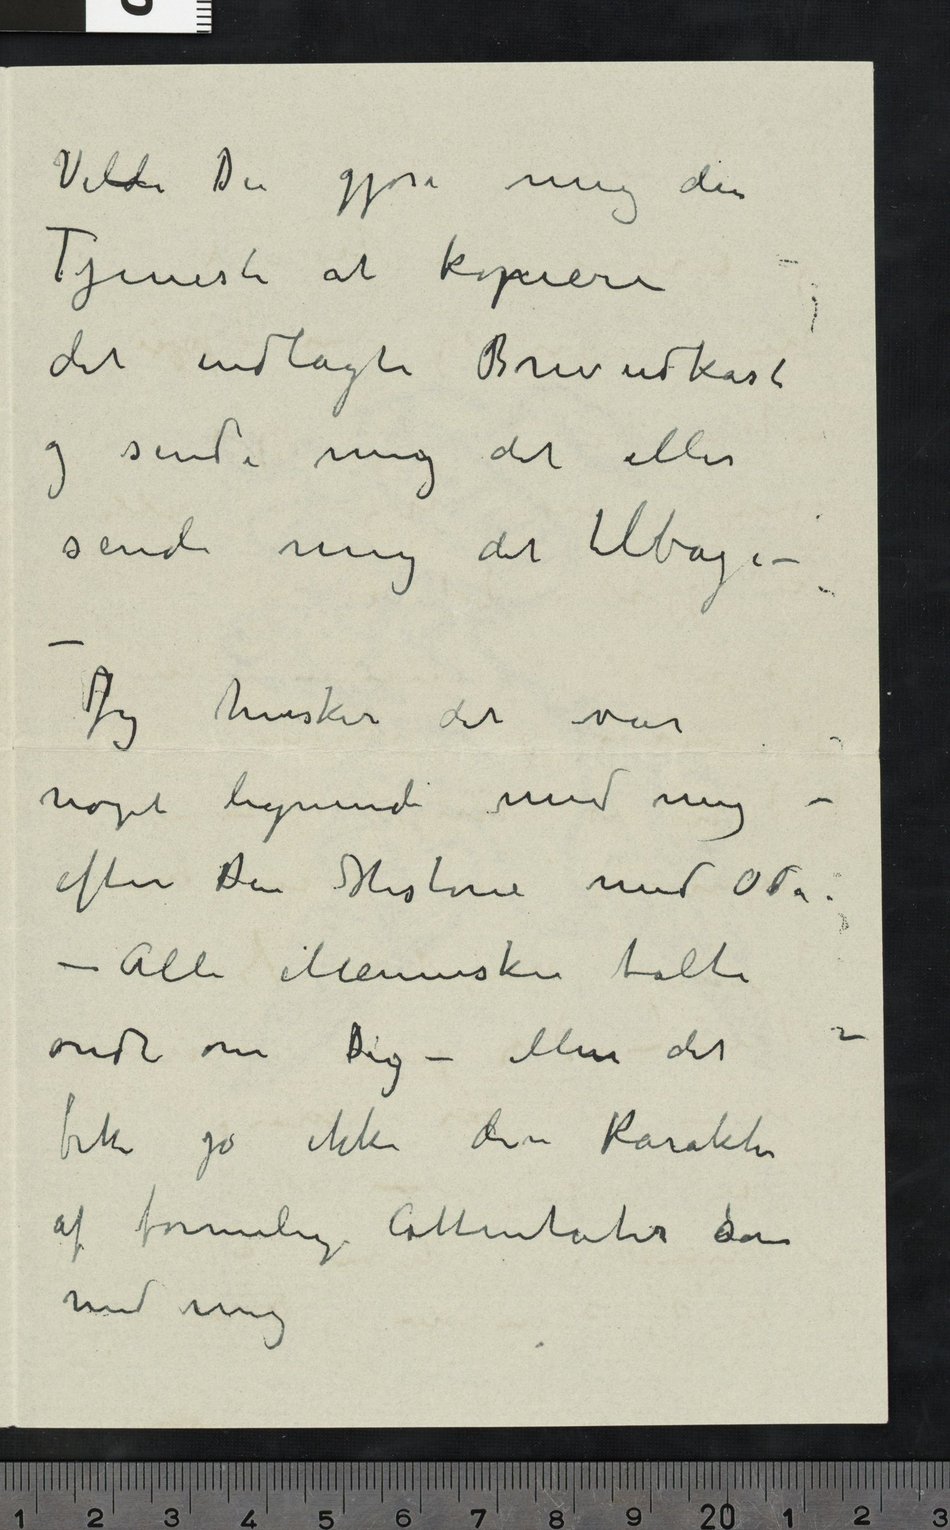 Vilde Du gjøre mig den
Tjeneste at kopiere
det indlagte Brevudkast
og sende mig det eller
sende mig det tilbage –
–
Jeg husker det var
noget lignende med mig –
efter Den Historie med Oda.
– Alle Mennesker talte
ondt om Dig – Men det
fik jo ikke den Karakter
af formelig Attentater som
med mig
1 2 3 4 5 6 7 8 9 20 1 2 3